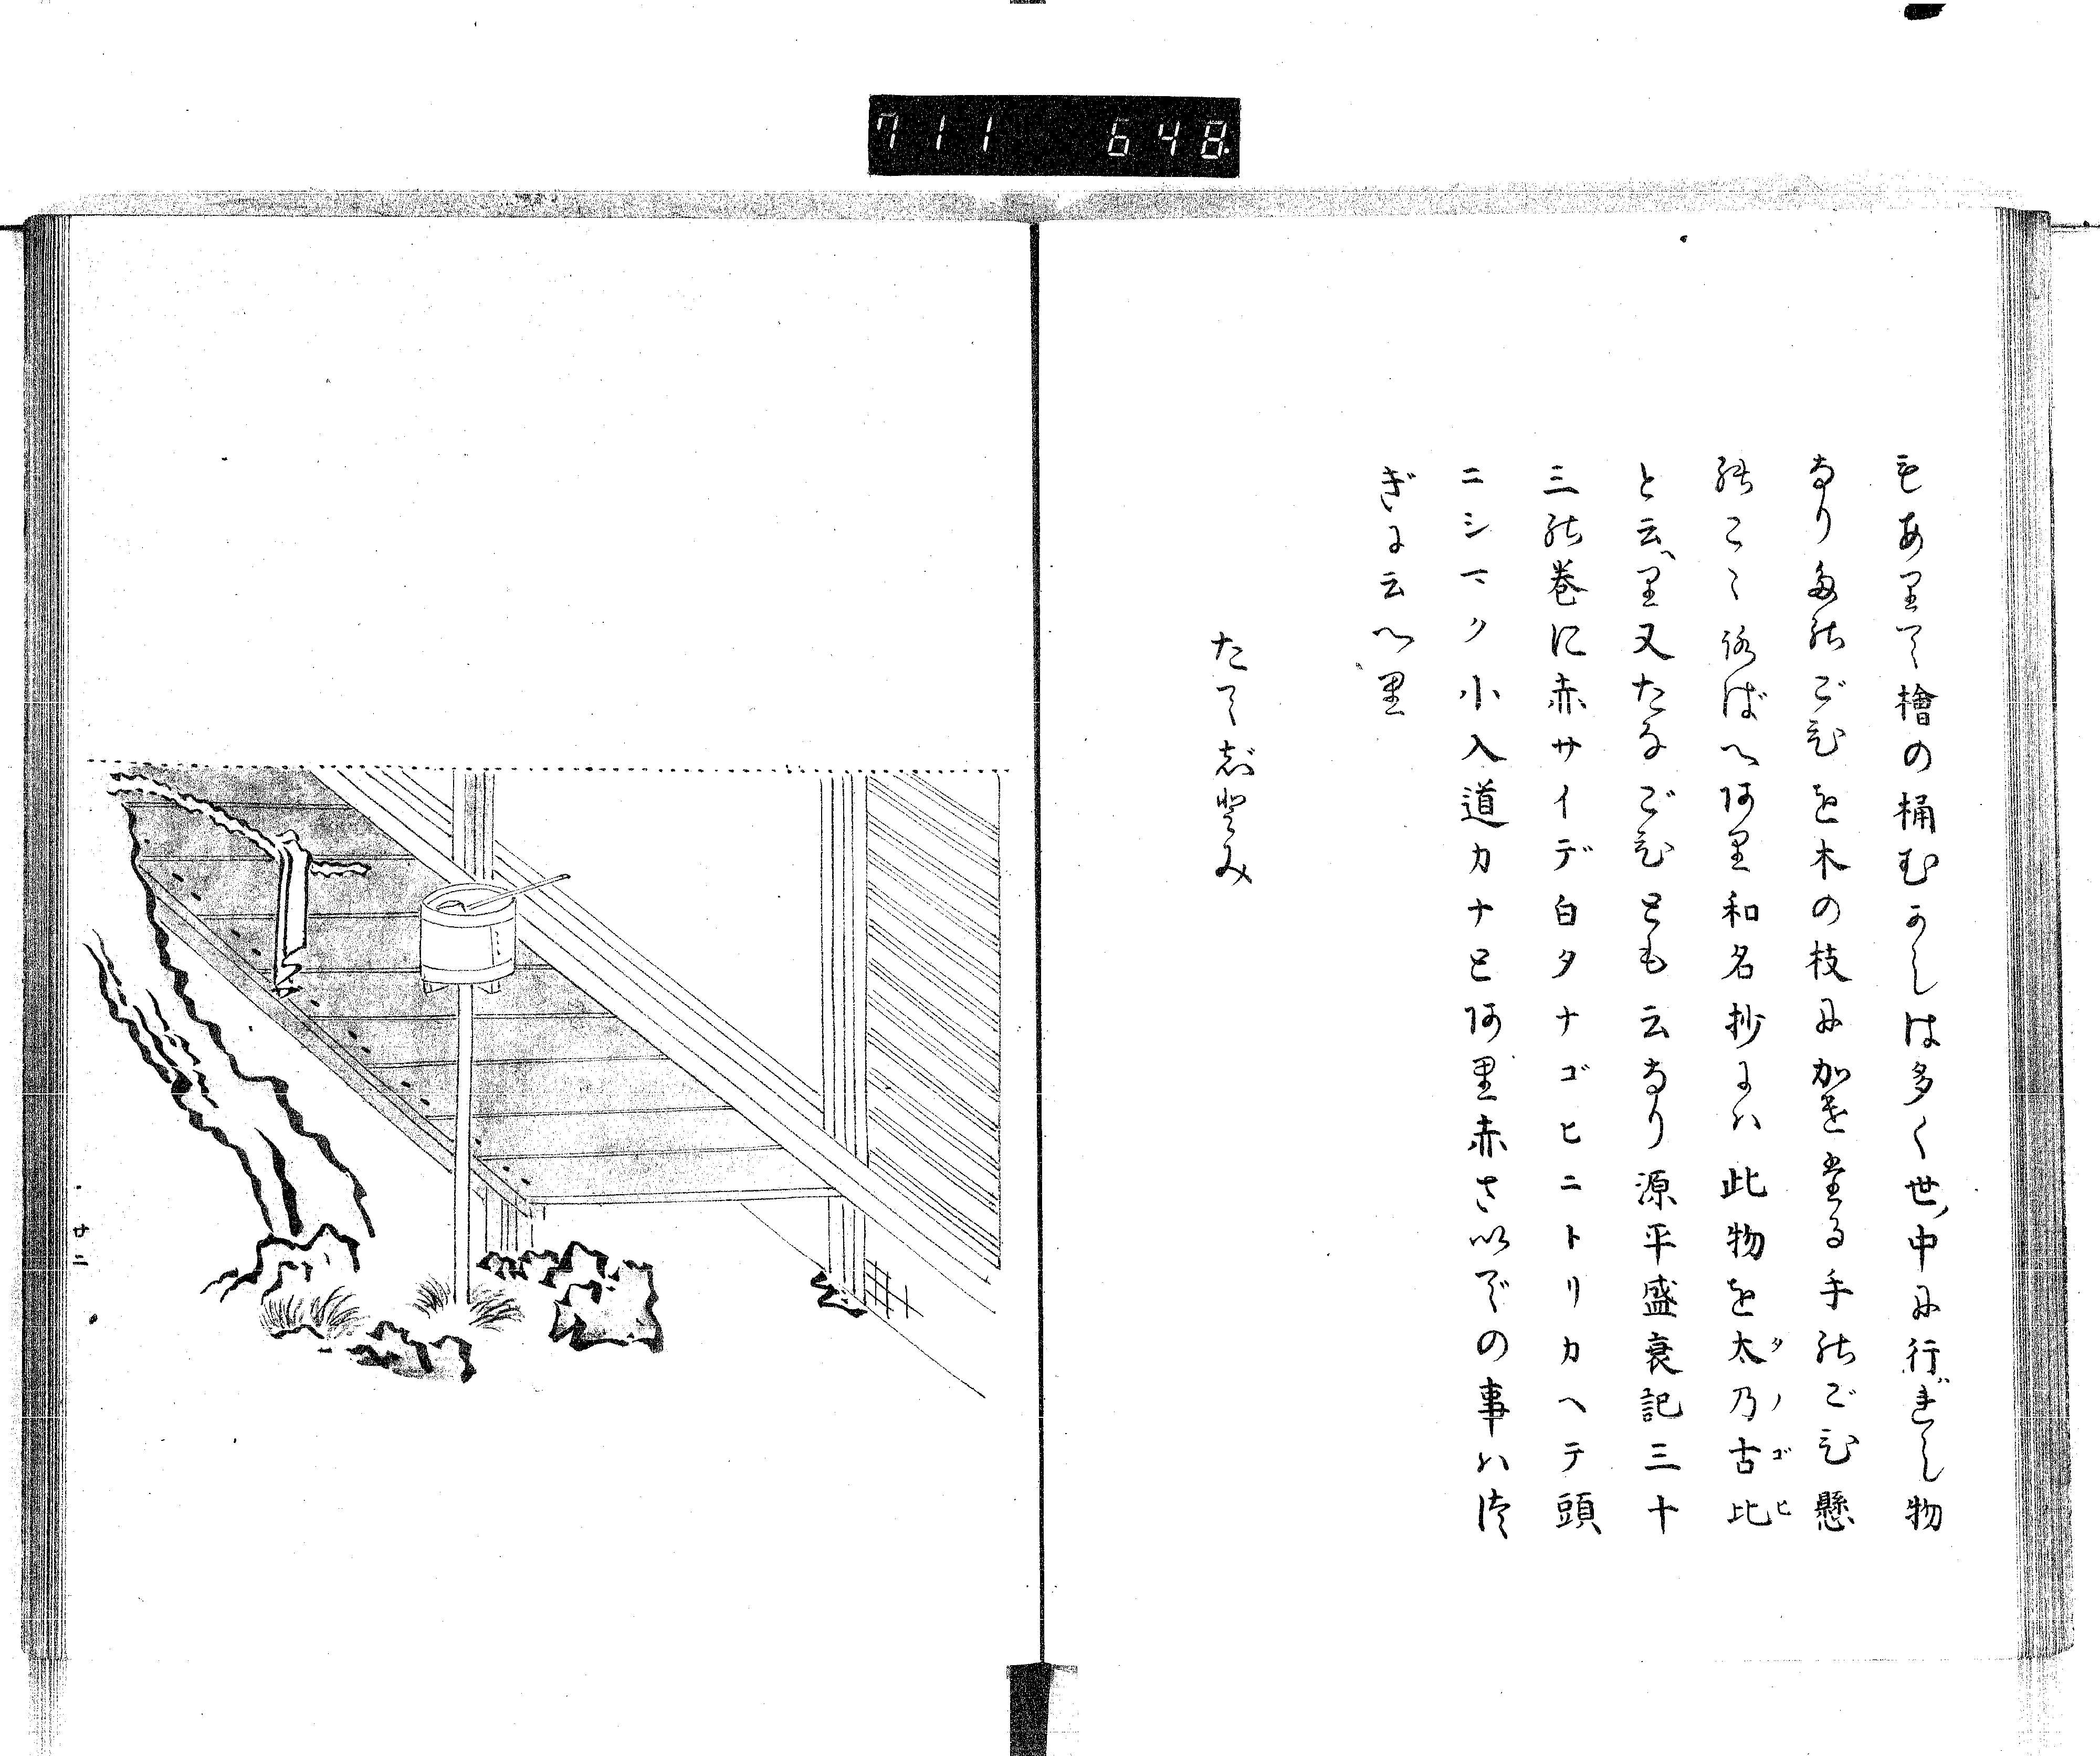 711 648
もありて檜の桶むかしは多く世ノ中に行ぎし物
なりたのごひを木の枝にかけたる手のごひ懸
のこゝろばへあり和名抄には此物を太乃古比
タノゴヒ
と云ヘり又たなごひとも云なり源平盛衰記三十
三の巻に赤サイデ白タナゴヒニトリカヘテ頭
ニシマク小入道カナとあり赤さいでの事はつ
ぎに云へり
たてじとみ
廿二